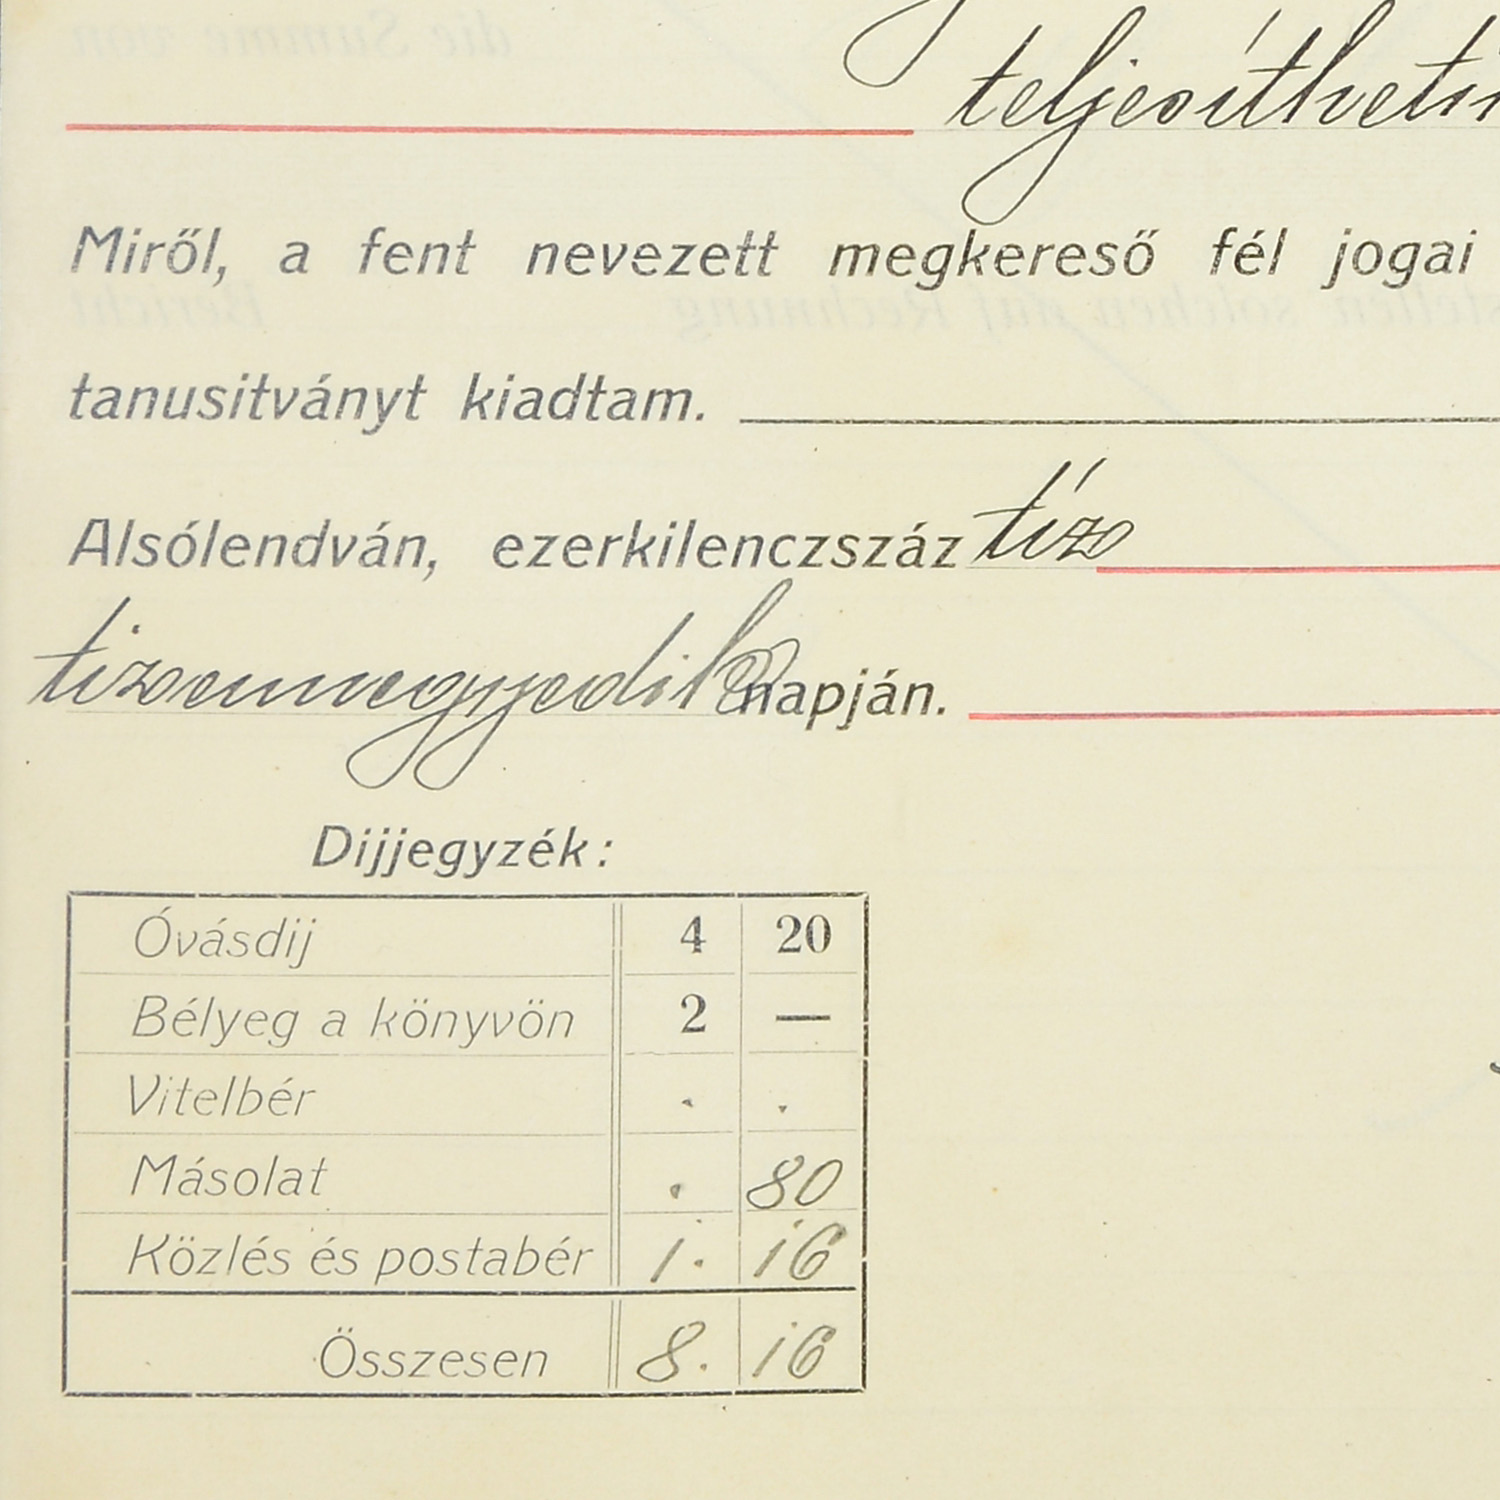 teljesíthető
Miről, a fent nevezett megkereső fél jogai
tanusitványt kiadtam.
Alsólendván, ezerkilenczszáz tíz
tizennegyedik napján.
Dijjegyzék:
Óvásdij 4 20
Bélyeg a könyvön 2 —
Vitelbér . .
Másolat . 80
Közlés és postabér 1. 16
Összesen 8. 16